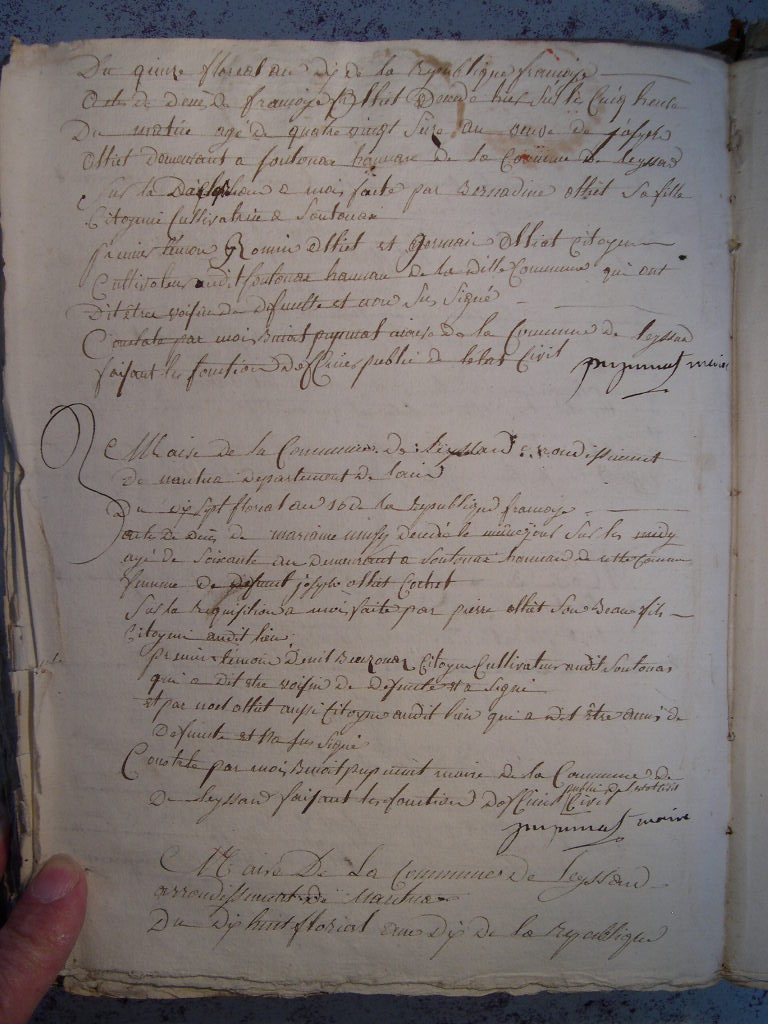 Du quinze floreal an dix de la republique françoise
acte de deces de françoise olliet decedé hier sur les cinq heure
Du matin agé de quatre vingt au veuve de joseph
olliet demeurant a soutonas hameau de la Commune de leyssard
sur la Declaration a moi faite par Bernardine olliet sa fille
Citoyene Cultivatrice a soutonas
premier temoin Romin olliet et germain olliet Citoyen
Cultivateur audit soutonas hameau de la ditte Commune qui ont
Dit être voisin de defunte et non su signé
Constaté par moi Benoit pupunat maire de la Commune de leyssard
faisant les fonction d'officier public de letat Civil pupunat maire
Mairie de la Commune de leyssard arrondissement
de nantua departement de lain
Du dix sept floreal an 10 de la republique françoise
acte de deces de mariaine decedé le sur les midy
agé de soixante an demeurant a soutonas hameau de cette commune
femme de defunt joseph olliet
sur la requisition a moi faite par pierre olliet son Beau fils
Citoyen audit lieu
premier temoin Denis Citoyen Cultivateur audit soutonas
qui a dit etre voisin de defunte et a signé
et par noel olliet aussi Citoyen audit lieu qui a dit être amis de
Defunte et n'a su signé
Constaté par moi Benoit pupunat maire de la Commune de
De leyssard faisant les fonction d'officier public de letat Civil
pupunat maire
Mairie De La Commune de Leyssard
arrondissement de Nantua
Du dix huit floreal an Dix de la Republique